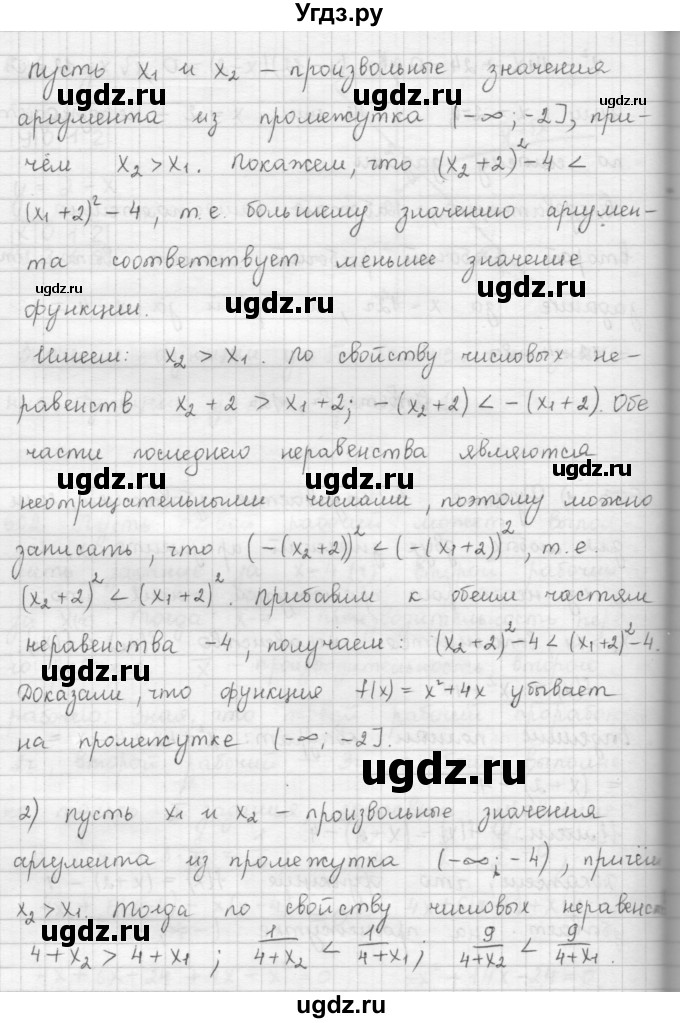 Угдз.ру
пусть x₁ и x₂ – произвольные значения
аргумента из промежутка (–∞; –2], при-
чём x₂ > x₁. Покажем, что (x₂+2)² – 4 <
(x₁+2)² – 4, т.е. большему значению аргумен-
та соответствует меньшее значение
функции.
Имеем: x₂ > x₁. По свойству числовых не-
равенств x₂ + 2 > x₁ + 2; –(x₂+2) < –(x₁+2). Обе
части последнего неравенства являются
неотрицательными числами, поэтому можно
записать, что (–(x₂+2))² < (–(x₁+2))², т.е.
(x₂+2)² < (x₁+2)². Прибавим к обеим частям
неравенства –4, получаем: (x₂+2)²–4 < (x₁+2)²–4.
Доказали, что функция f(x) = x²+4x убывает
на промежутке (–∞; –2].
2) пусть x₁ и x₂ – произвольные значения
аргумента из промежутка (–∞; –4), причём
x₂ > x₁. Тогда по свойству числовых неравенст
4+x₂ > 4+x₁; 1/(4+x₂) < 1/(4+x₁); 9/(4+x₂) < 9/(4+x₁).
ugdz.ru